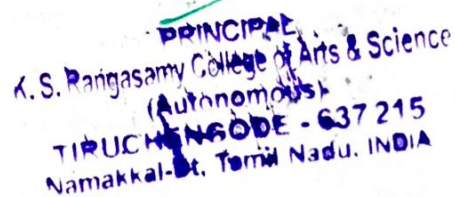 PRINCIPAL
K. S. Rangasamy College of Arts & Science
(Autonomous)
TIRUCHENGODE - 637 215
Namakkal-Dt. Tamil Nadu. INDIA